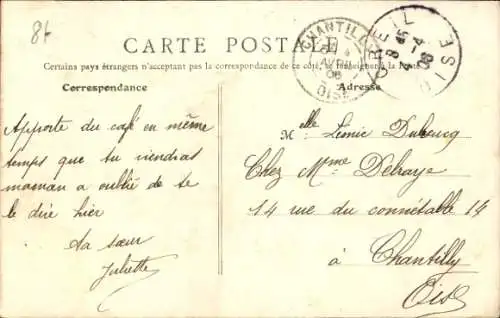 81
CARTE POSTALE
Certains pays étrangers n'acceptent pas la correspondance de ce côté, se renseigner à la Poste
Correspondance
Adresse
CHANTILLY
AVRIL
06
OISE
CREIL
8 45
4 - 4
06
OISE
Apporte du café en même
temps que tu viendras
maman a oublié de te
le dire hier
ta sœur
Juliette
Melle Dubucq
Chez Mme Delraye
14 rue du connétable 14
à Chantilly
Oise